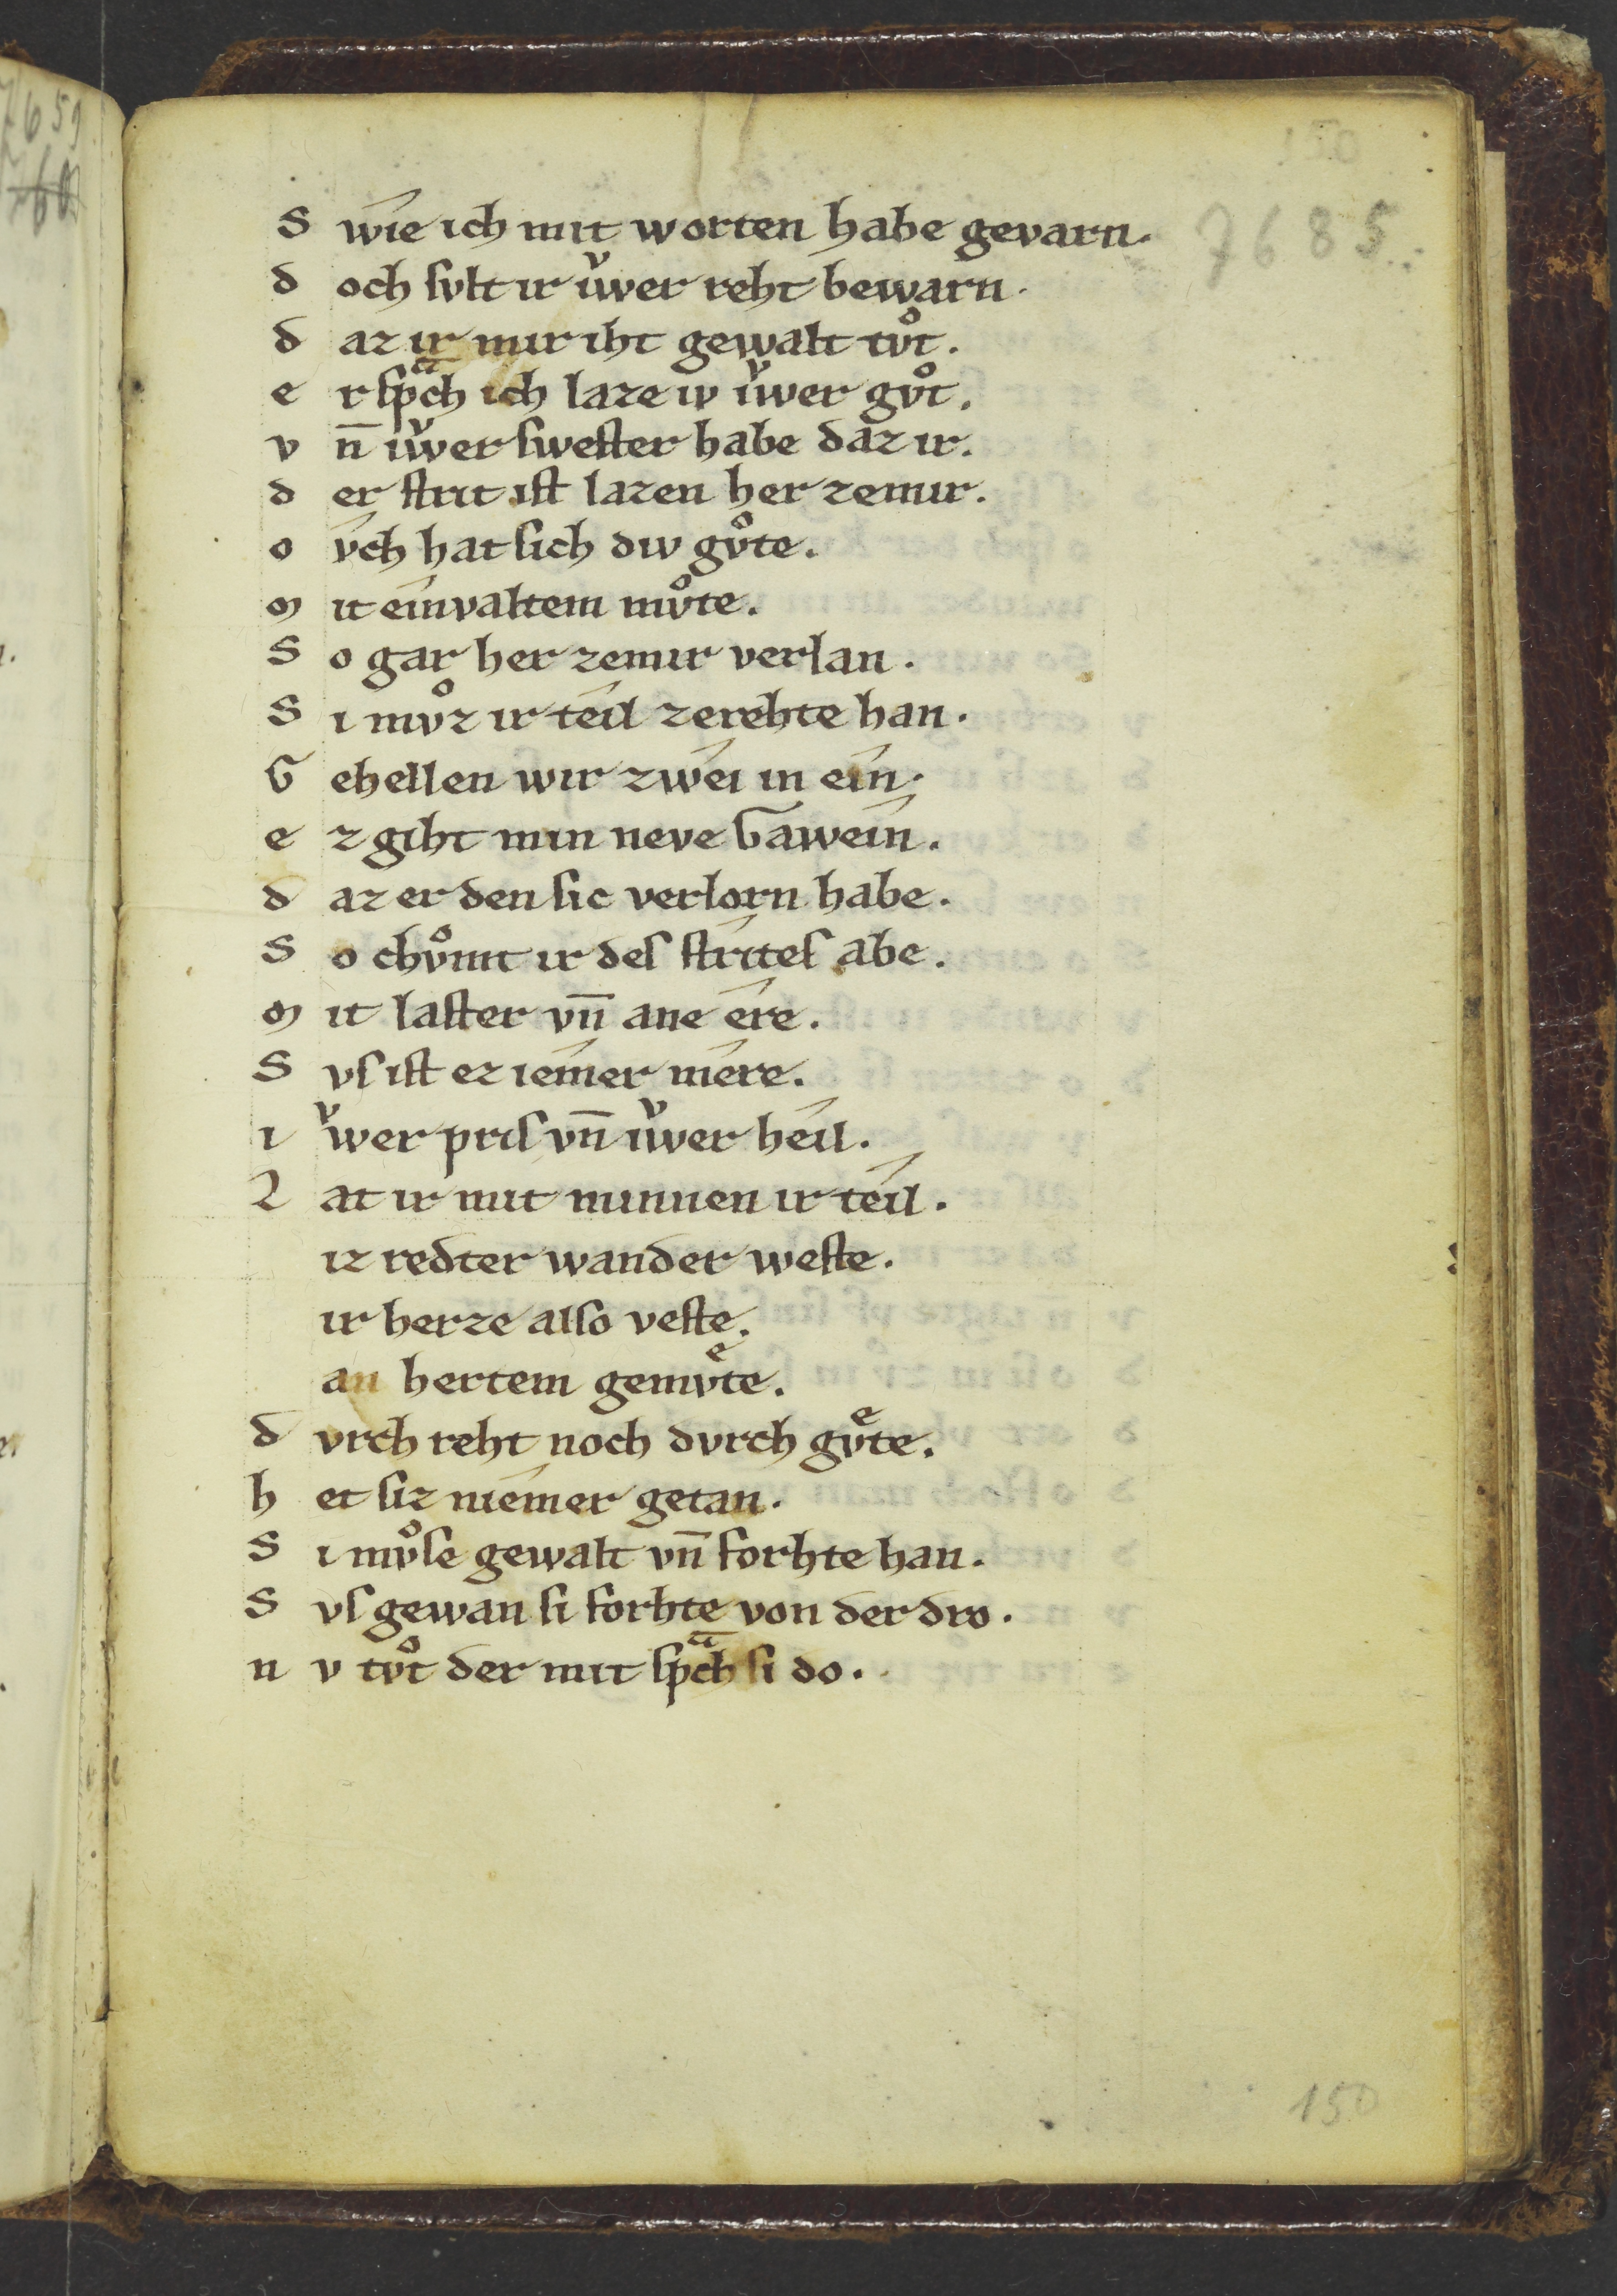 150
7685
S wie ich mit worten habe gevarn.
d och ſvlt ir iv̌wer reht bewarn.
d az ir mir iht gewalt tvͦt.
e r ſpͣch ich laze iv iv̌wer gvͦt.
v n̄ iv̌wer ſweſter habe daz ir.
d er ſtrit iſt lazen her zemir.
o vch hat ſich div gvͦte.
m it einvaltem mvͦte.
S o gar her zemir verlan.
S i mvͦz ir teil zerehte han.
G ehellen wir zwei in ein.
e z giht min neve Gawein.
d az er den ſic verlorn habe.
S o chvͦmt ir deſ ſtriteſ abe.
m it laſter vn̄ ane ere.
S vſ iſt ez iemer mere.
i v̌wer priſ vn̄ iv̌wer heil.
L at ir mit minnen ir teil.
iz redter wander weſte.
ir herze alſo veſte.
an hertem gemvͤte.
d vrch reht noch dvrch gvͤte.
h et ſiz niemer getan.
S i mvͦſe gewalt vn̄ forhte han.
S vſ gewan ſi forhte von der dro.
n v tvͦt der mit ſpͣch ſi do.
150
7659
60